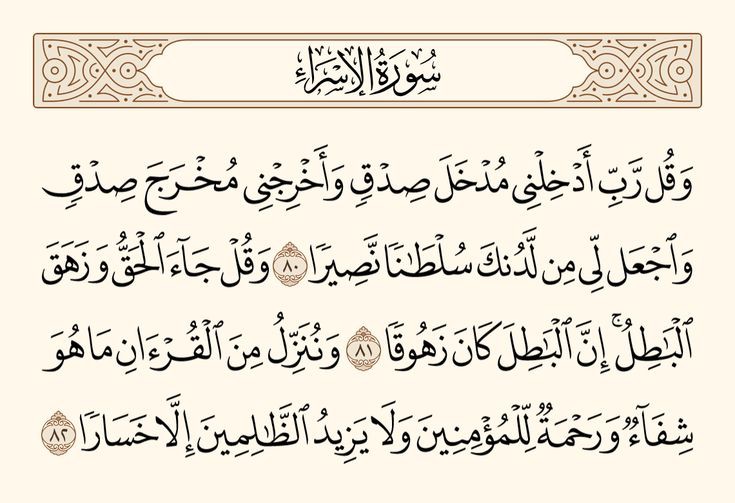 سُورَةُ الإِسْرَاءِ
وَقُل رَّبِّ أَدْخِلْنِى مُدْخَلَ صِدْقٍ وَأَخْرِجْنِى مُخْرَجَ صِدْقٍ
وَٱجْعَل لِّى مِن لَّدُنكَ سُلْطَـٰنًا نَّصِيرًا ٨٠ وَقُلْ جَآءَ ٱلْحَقُّ وَزَهَقَ
ٱلْبَـٰطِلُ ۚ إِنَّ ٱلْبَـٰطِلَ كَانَ زَهُوقًا ٨١ وَنُنَزِّلُ مِنَ ٱلْقُرْءَانِ مَا هُوَ
شِفَآءٌ وَرَحْمَةٌ لِّلْمُؤْمِنِينَ وَلَا يَزِيدُ ٱلظَّـٰلِمِينَ إِلَّا خَسَارًا ٨٢